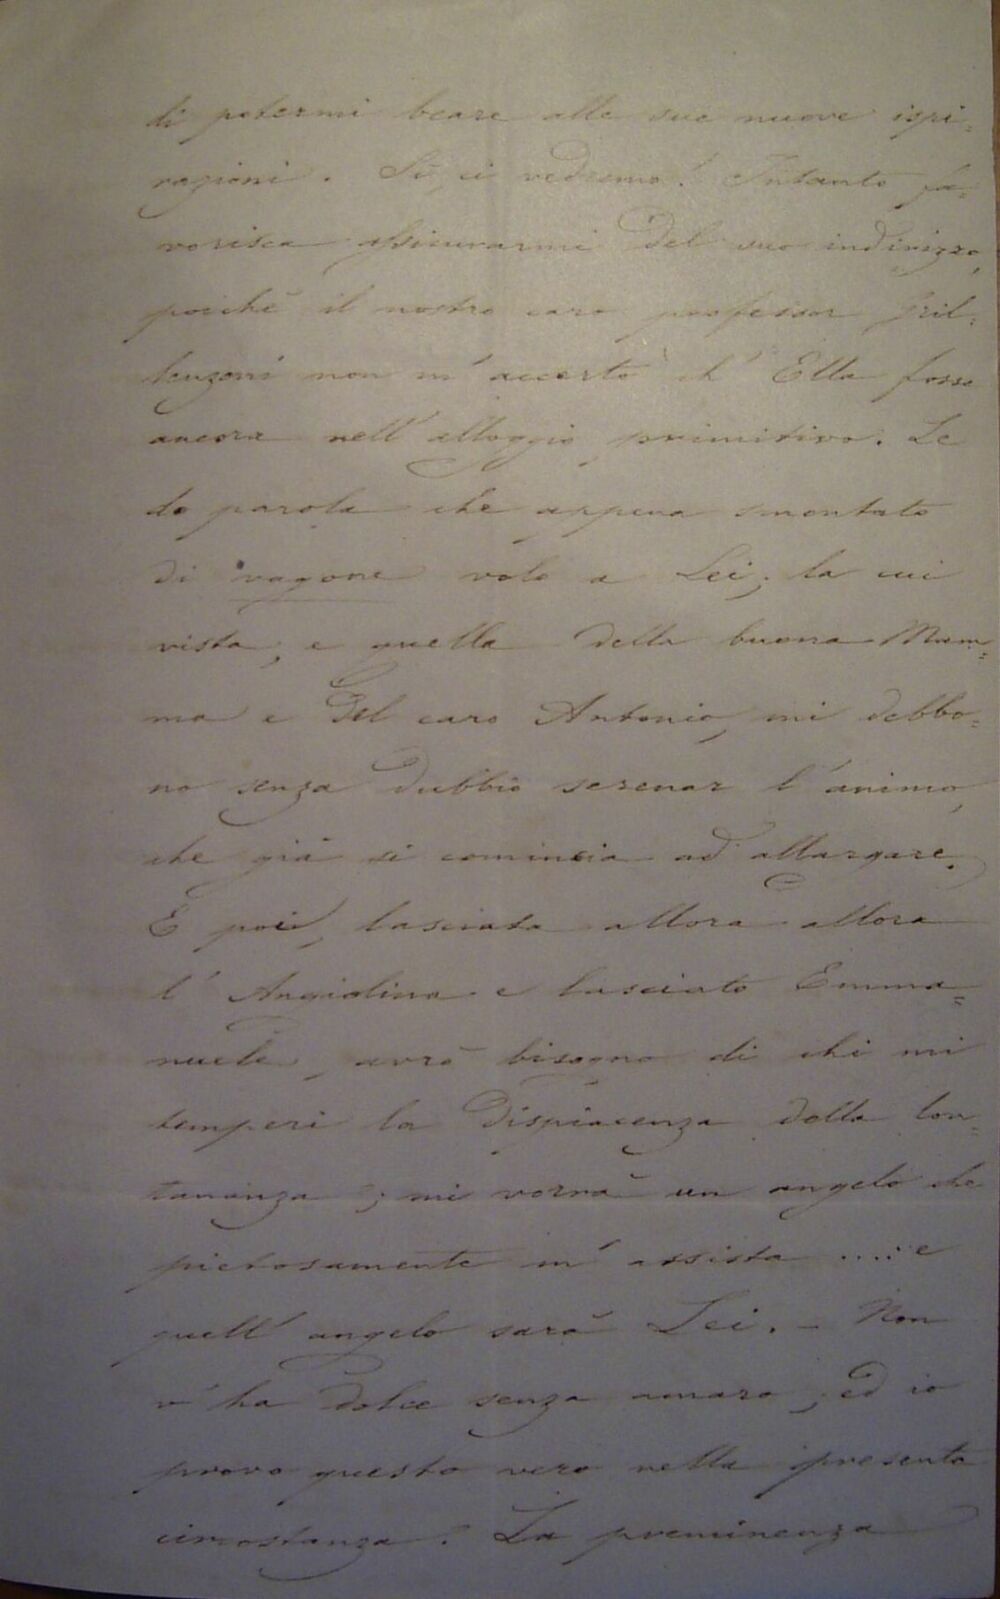 di potermi beare alle sue nuove ispi=
razioni. Sì ci vedremo! Intanto fa=
vorisca assicurarmi del suo indirizzo,
poichè il nostro caro professor Gril=
lenzoni non m'accertò ch'Ella fosse
ancora nell'alloggio primitivo. Le
do parola che appena smontato
di vagone volo a Lei; la cui
vista, e quella della buona Mam=
ma e del caro Antonio, mi debbo=
no senza dubbio serenar l'animo,
che già si comincia ad allargare.
E poi, lasciata allora allora
l'Angiolina e lasciato Emma=
nuele, avrò bisogno di chi mi
temperi la dispiacenza della lon=
tananza; mi vorrà un angelo che
pietosamente m'assista ..... e
quell'angelo sarà Lei. – Non
v'ha dolce senza amaro, ed io
provo questo vero nella presente
circostanza. La preminenza